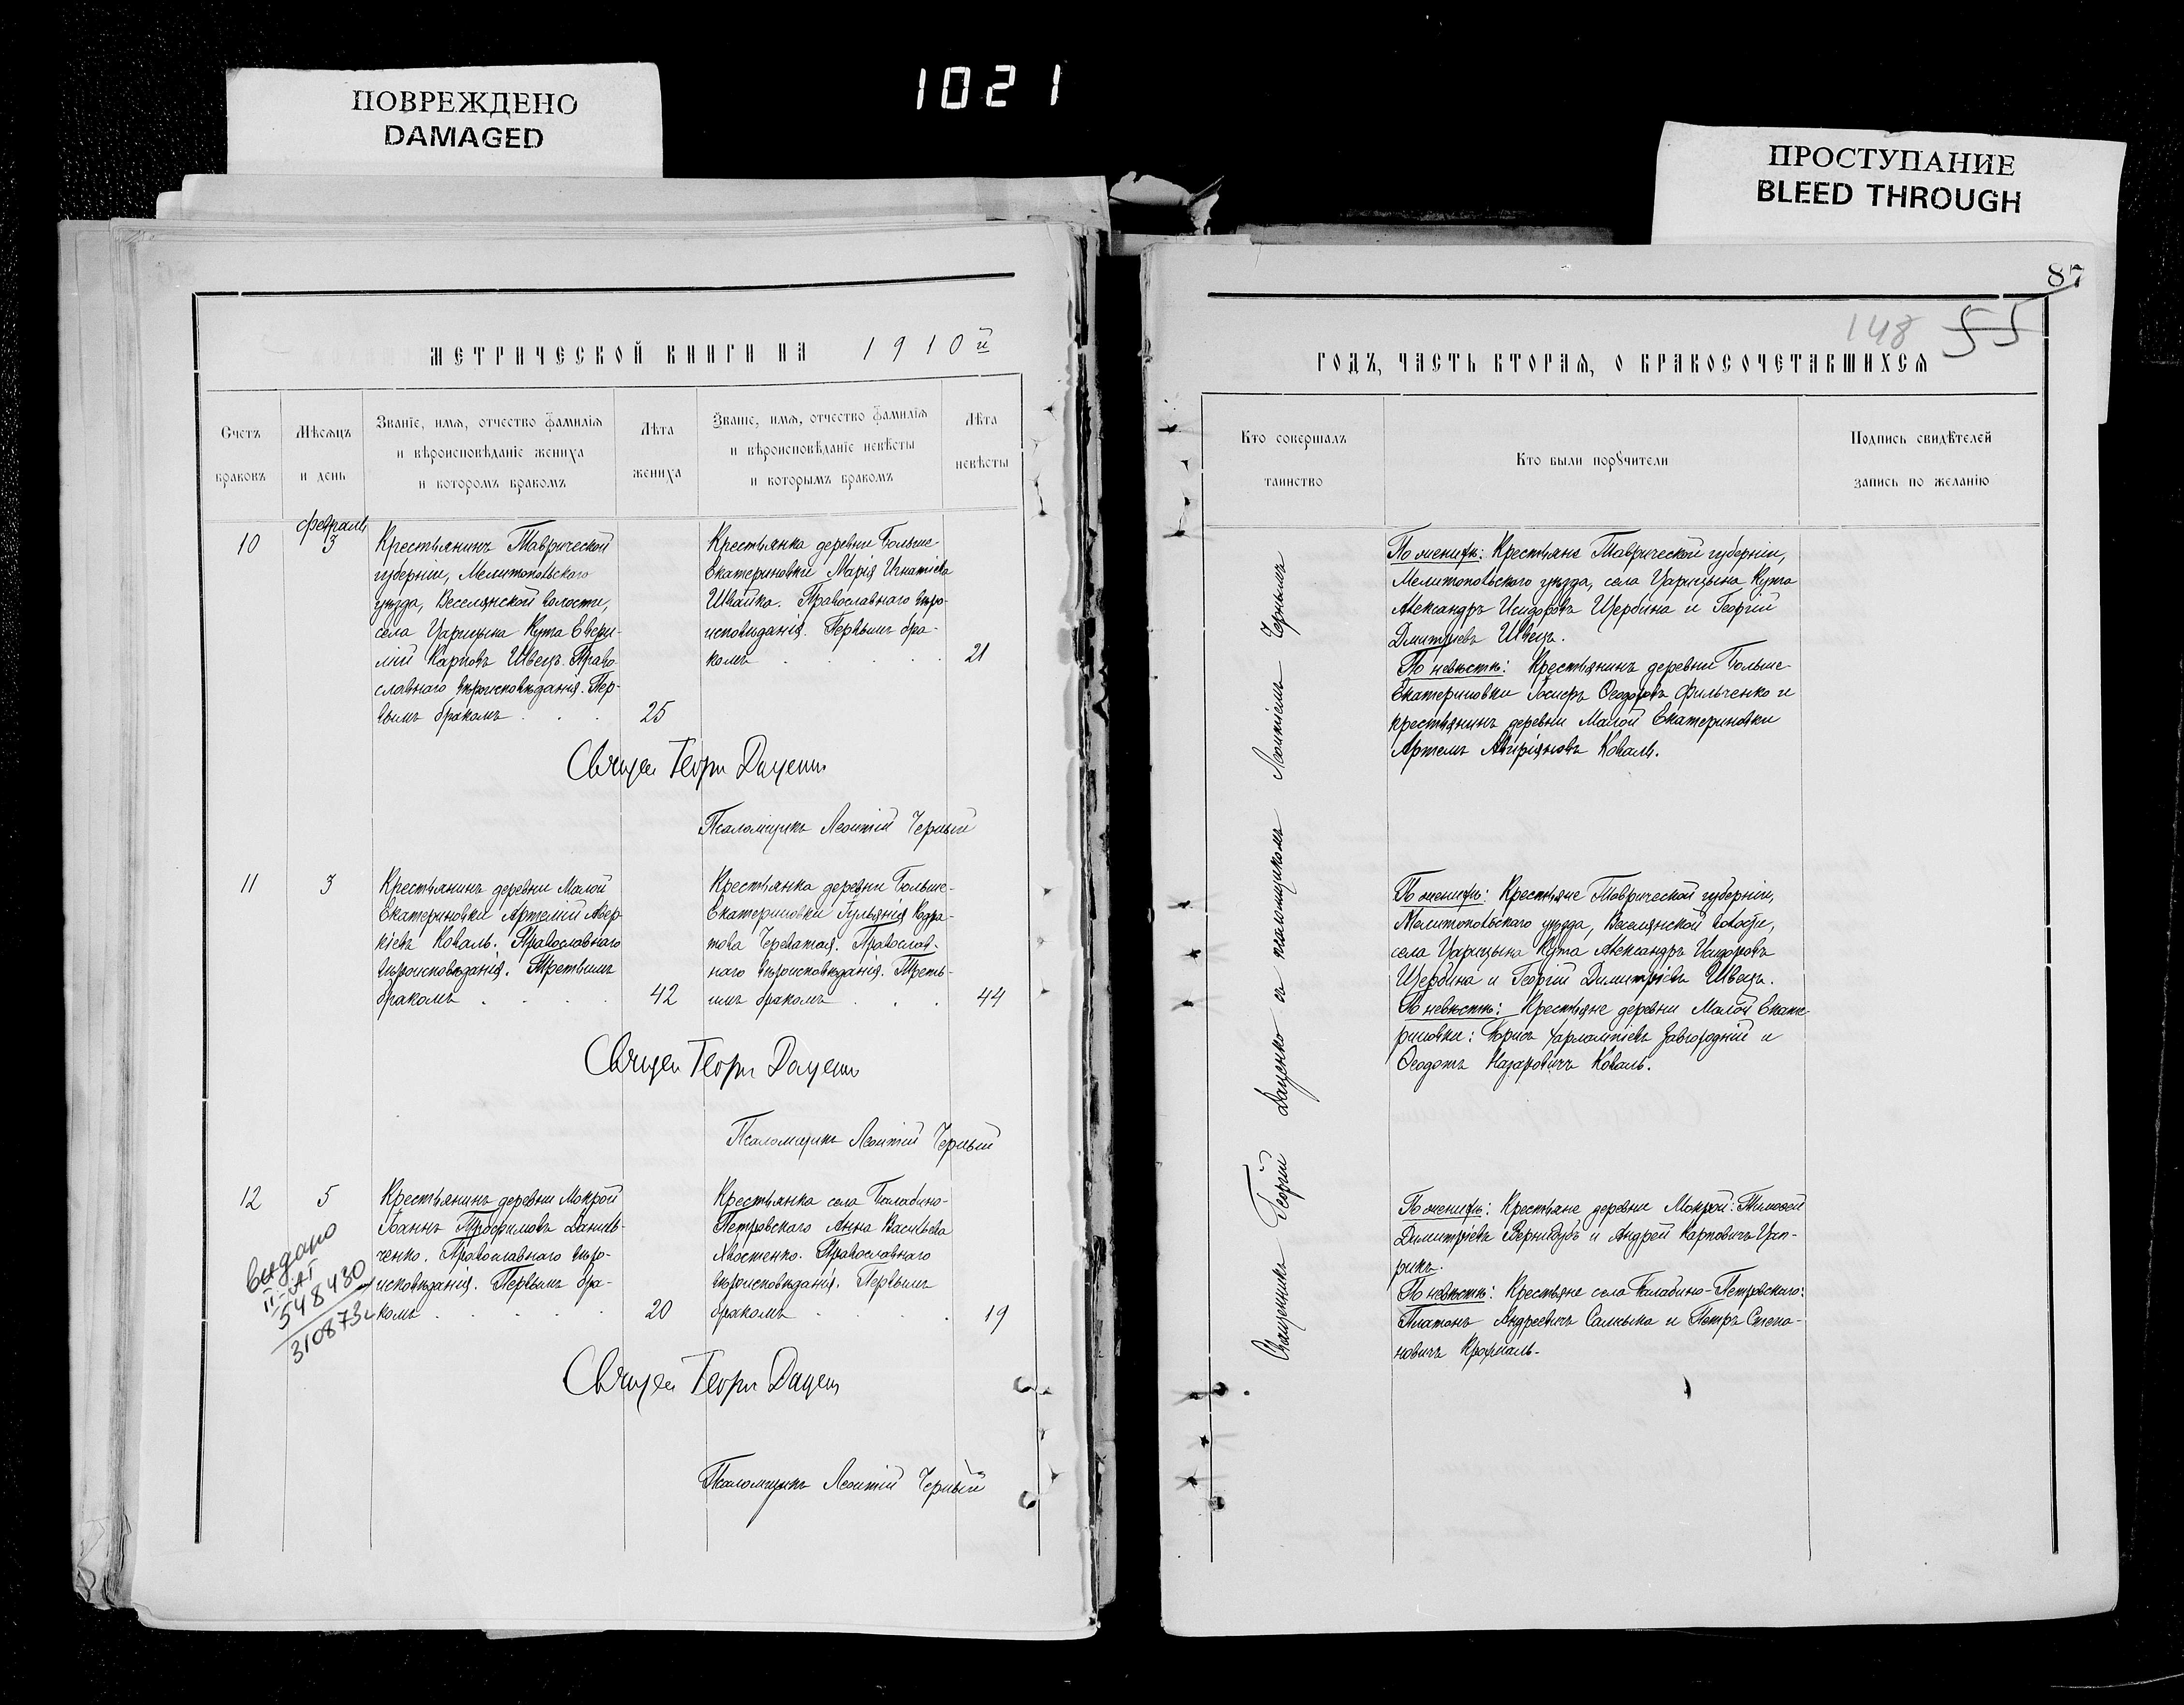 ПОВРЕЖДЕНО
DAMAGED
1021
ПРОСТУПАНИЕ
BLEED THROUGH
МЕТРИЧЕСКОЙ КНИГИ НА 1910й
Счетъ браковъ
Мѣсяцъ и день
Званіе, имя, отчество фамилія
и вѣроисповѣданіе жениха
и которомъ бракомъ
Лѣта жениха
Званіе, имя, отчество фамилія
и вѣроисповѣданіе невѣсты
и которымъ бракомъ
Лѣта невѣсты
10
февраль
3
Крестьянинъ Таврической
губерніи, Мелитопольскаго
уѣзда, Веселянской волости,
села Царицына Кута
Карповъ Швецъ. Право-
славнаго вѣроисповѣданія. Пер-
вымъ бракомъ
25
Крестьянка деревни Больше-
Екатериновки Марія Игнатіева
Швайка. Православнаго вѣро-
исповѣданія. Первымъ бра-
комъ
21
Георгі Даценко
Псаломщикъ Леонтій Черный
11
3
Крестьянинъ деревни Малой
Екатериновки Артемій Авер-
кіевъ Коваль. Православнаго
вѣроисповѣданія. Третьимъ
бракомъ
42
Крестьянка деревни Больше-
Екатериновки Іульянія Кодра-
това Череватая. Православ-
наго вѣроисповѣданія. Треть-
имъ бракомъ
44
Георгі Даценко
Псаломщикъ Леонтій Черный
12
5
Крестьянинъ деревни Мокрой
Іоаннъ Трофимовъ Даниль-
ченко. Православнаго вѣро-
исповѣданія. Первымъ бра-
комъ
20
Крестьянка села Балабино-
Петровскаго Анна Васильева
Хвостенко. Православнаго
вѣроисповѣданія. Первымъ
бракомъ
19
выдано
548430
310873
Георгі Даценко
Псаломщикъ Леонтій Черный
87
148 55
ГОДЪ, ЧАСТЬ ВТОРАЯ, О БРАКОСОЧЕТАВШИХСЯ
Кто совершалъ
таинство
Кто были поручители
Подпись свидѣтелей
запись по желанію
Священникъ Георгій Даценко съ псаломщикомъ Леонтіемъ Чернымъ
По женихѣ: Крестьяне Таврической губерніи,
Мелитопольскаго уѣзда, села Царицына Кута
Александръ Исидоровъ Щербина и Георгій
Дмитріевъ Швецъ.
По невѣстѣ: Крестьянинъ деревни Больше-
Екатериновки Іосифъ Ѳеодоровъ Фильченко и
крестьянинъ деревни Малой Екатериновки
Артемъ Коваль.
По женихѣ: Крестьяне Таврической губерніи,
Мелитопольскаго уѣзда, Веселянской волости,
села Царицына Кута Александръ Исидоровъ
Щербина и Георгій Димитріевъ Швецъ.
По невѣстѣ: Крестьяне деревни Малой Екате-
риновки: Борисъ Харлампіевъ Завгородній и
Ѳеодотъ Назаровичъ Коваль.
По женихѣ: Крестьяне деревни Мокрой: Тимоѳей
Димитріевъ Вернидубъ и Андрей Карповичъ
По невѣстѣ: Крестьяне села Балабино-Петровскаго:
Платонъ Андреевичъ и Петръ Степа-
новичъ